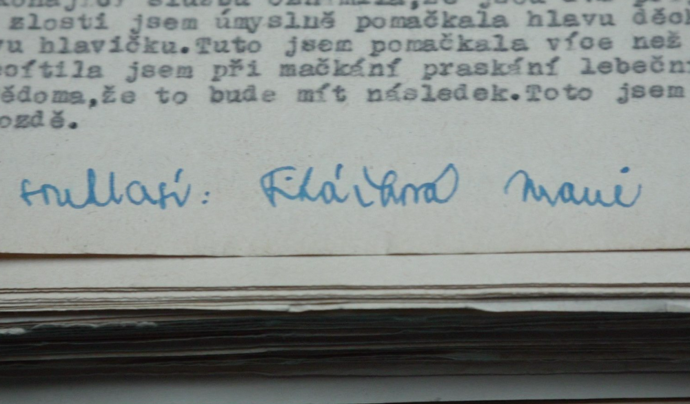 zlosti jsem úmyslně pomačkala hlavu
hlavičku.Tuto jsem pomačkala více než
jsem při mačkání praskání
že to bude mít následek.Toto jsem
souhlasí: Fikáčková Marie